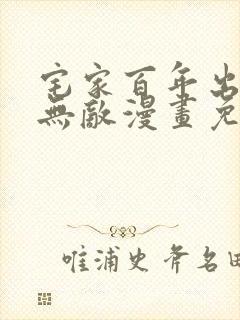 宅家百年出
無敵漫畫免
唯浦史斧名田